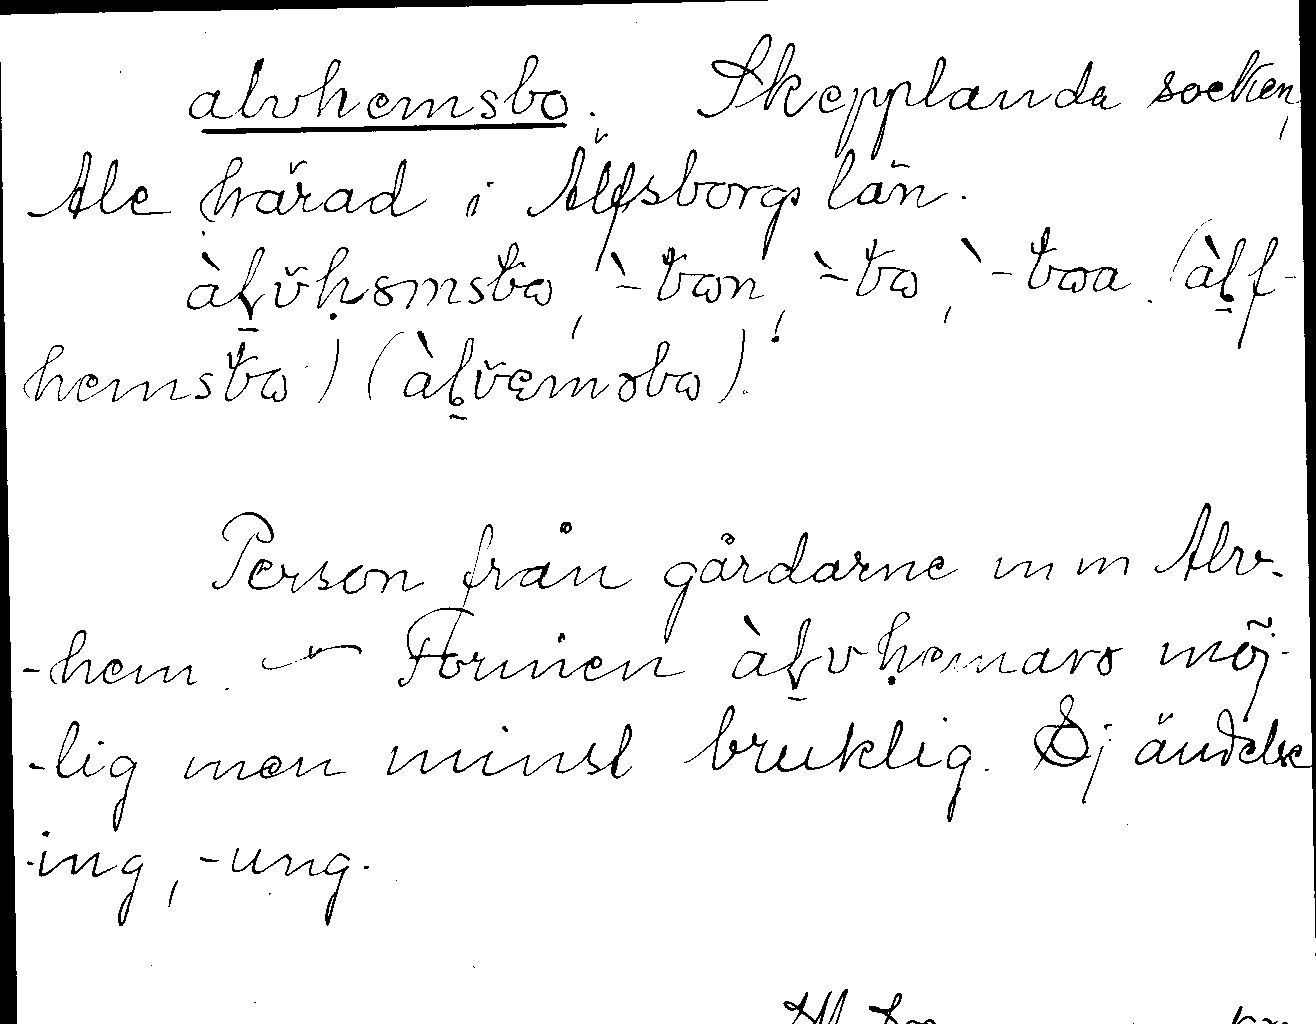 alvhemsbo. Skepplanda socken,
Ale härad i Älfsborgs län.
àḷvḥemsbω, `-bωn, `-bω, `-bωa. (àḷf-
hemsbω) (àḷvemsbω).
Person från gårdarne m m Alv-
-hem. — Formen àḷvḥemarə möj-
-lig men minst bruklig. Ej ändelse
-ing, -ung.